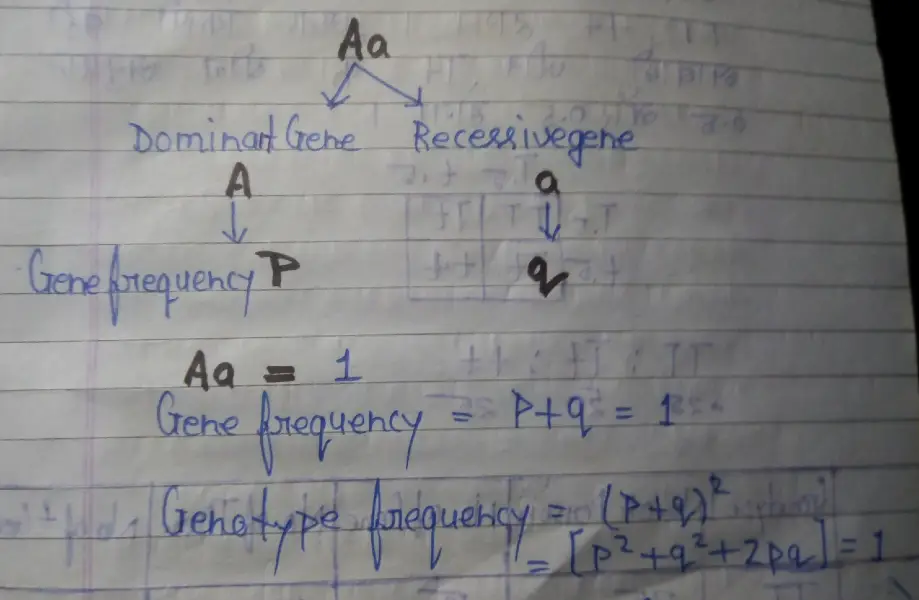 Aa
Dominant Gene Recessive gene
A a
Gene frequency P q
Aa = 1
Gene frequency = P+q = 1
Genotype frequency = (P+q)²
= [p²+q²+2pq] = 1